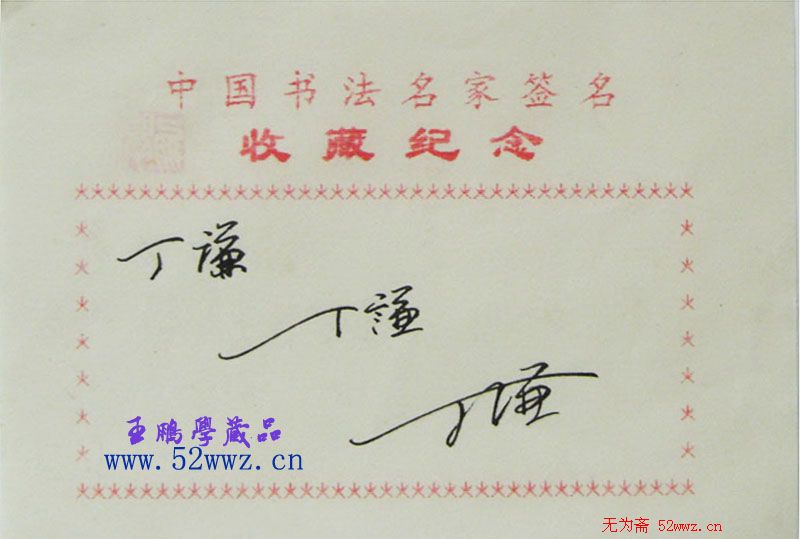 中国书法名家签名
收藏纪念
丁謙
丁謙
丁謙
王鵬學藏品
www.52wwz.cn
无为斋 52wwz.cn